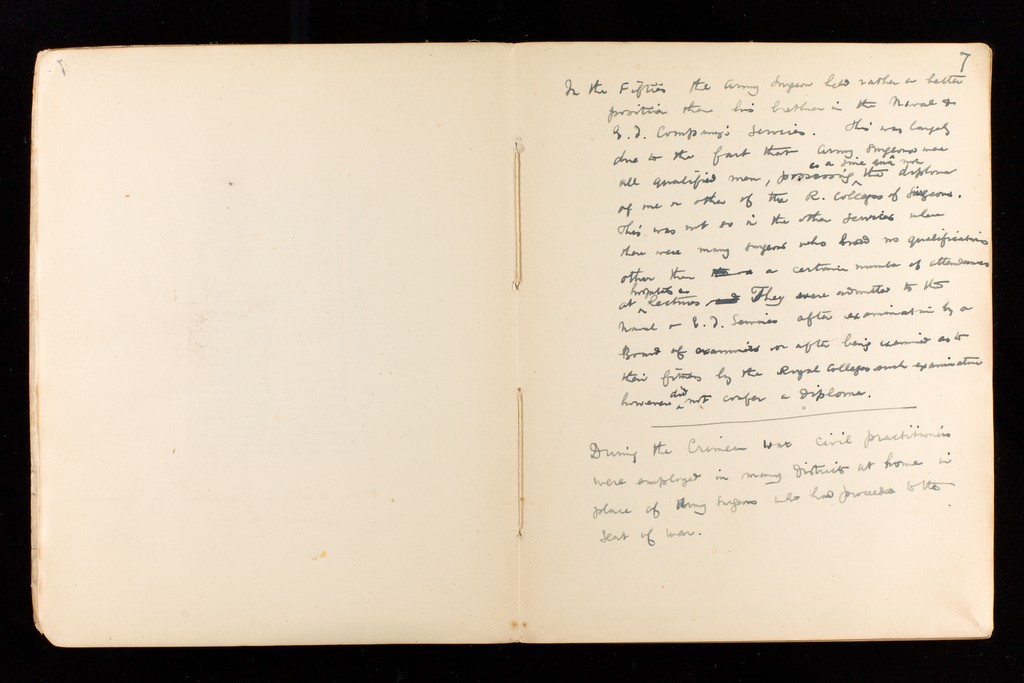 7
In the Fifties the Army Surgeon held rather a better
position than his brethren in the Naval &
E.I. Company's Services. This was largely
due to the fact that Army Surgeons were
as a sine quâ non
all qualified men, possessing the diploma
of one or other of the R. Colleges of Surgeons.
This was not so in the other Services where
there were many surgeons who had no qualifications
other than a certain number of attendances
hospitals &
at lectures They were admitted to the
Naval & E.I. Services after examination by a
Board of examiners or after being examined as to
their fitness by the Royal Colleges such examination
did
however not confer a diploma.
During the Crimean war civil practitioners
were employed in many Districts at home in
place of Army Surgeons who had proceeded to the
seat of war.